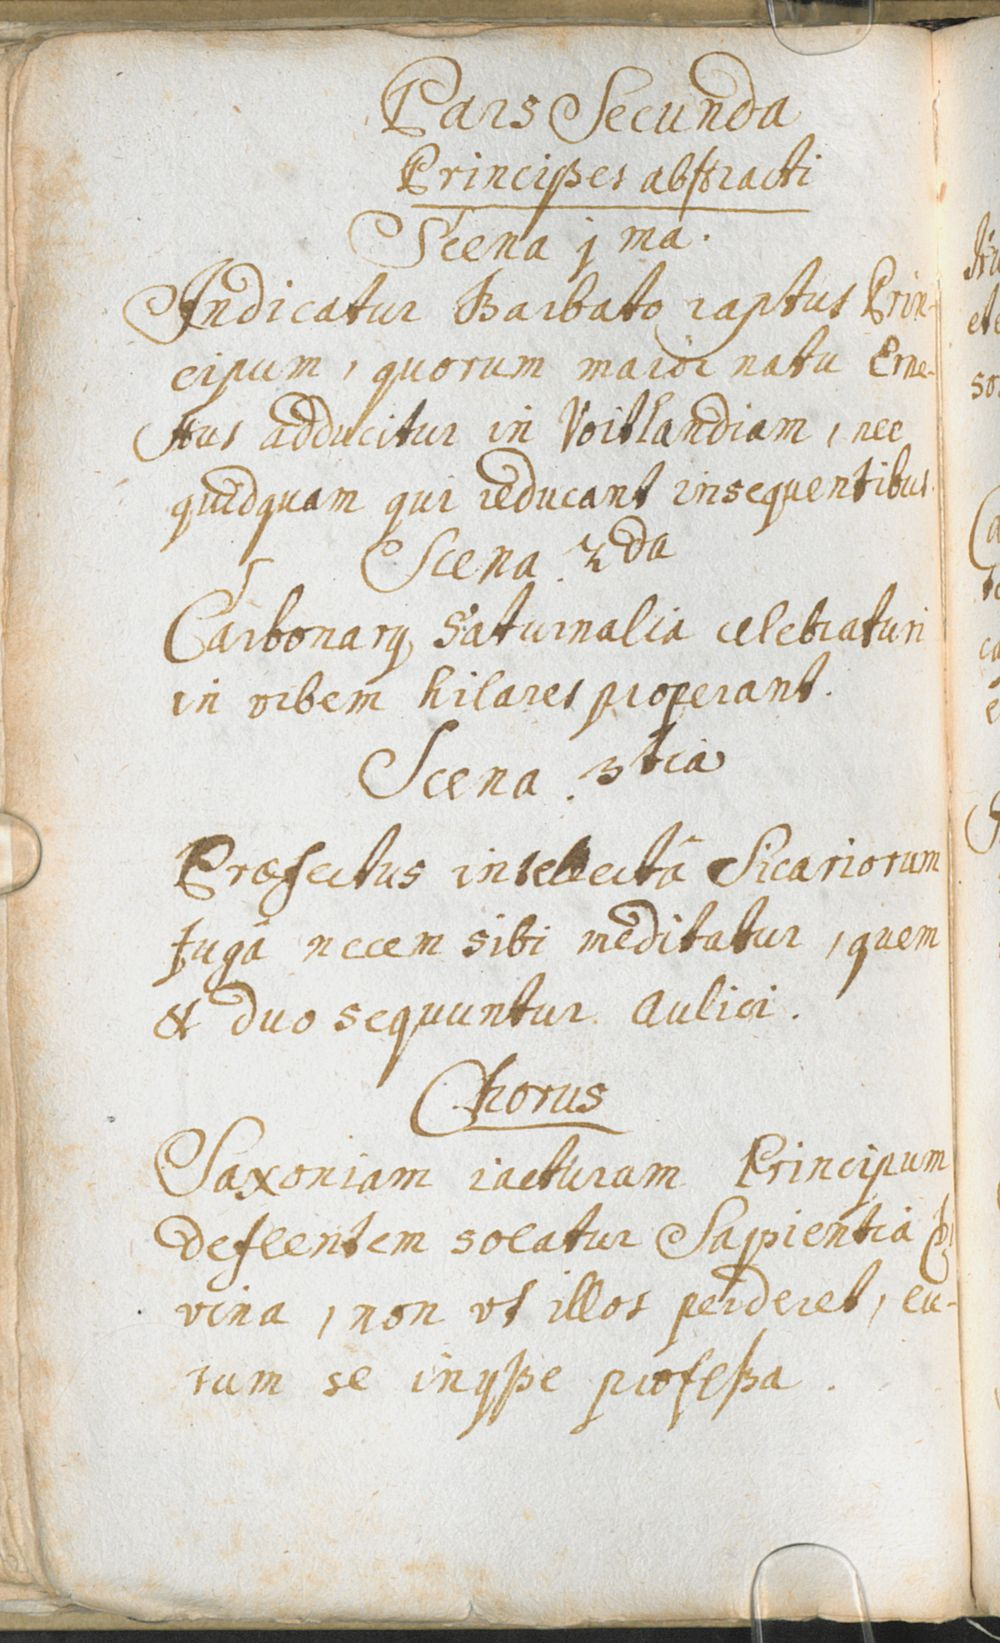 Pars Secunda
Principes abstracti
Scena j ma.
Indicatur Barbato raptus Prin-
cipum, quorum maior natu Erne-
stus adducitur in Voitlandiam, nec
quidquam qui reducant insequentibus.
Scena 2da
Carbonarij Saturnalia celebraturi
in vrbem hilares properant.
Scena 3tia
Præfectus intellectâ Sicariorum
fugâ necem sibi meditatur, quem
& duo sequuntur Aulici.
Chorus
Saxoniam iacturam Principum
deflentem solatur Sapientia Di
vina, non vt illos perderet,
rum se inijsse professa.